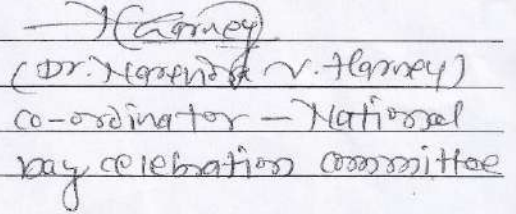 Harney
(Dr. Narendra V. Harney)
co-ordinator – National
Day celebration committee